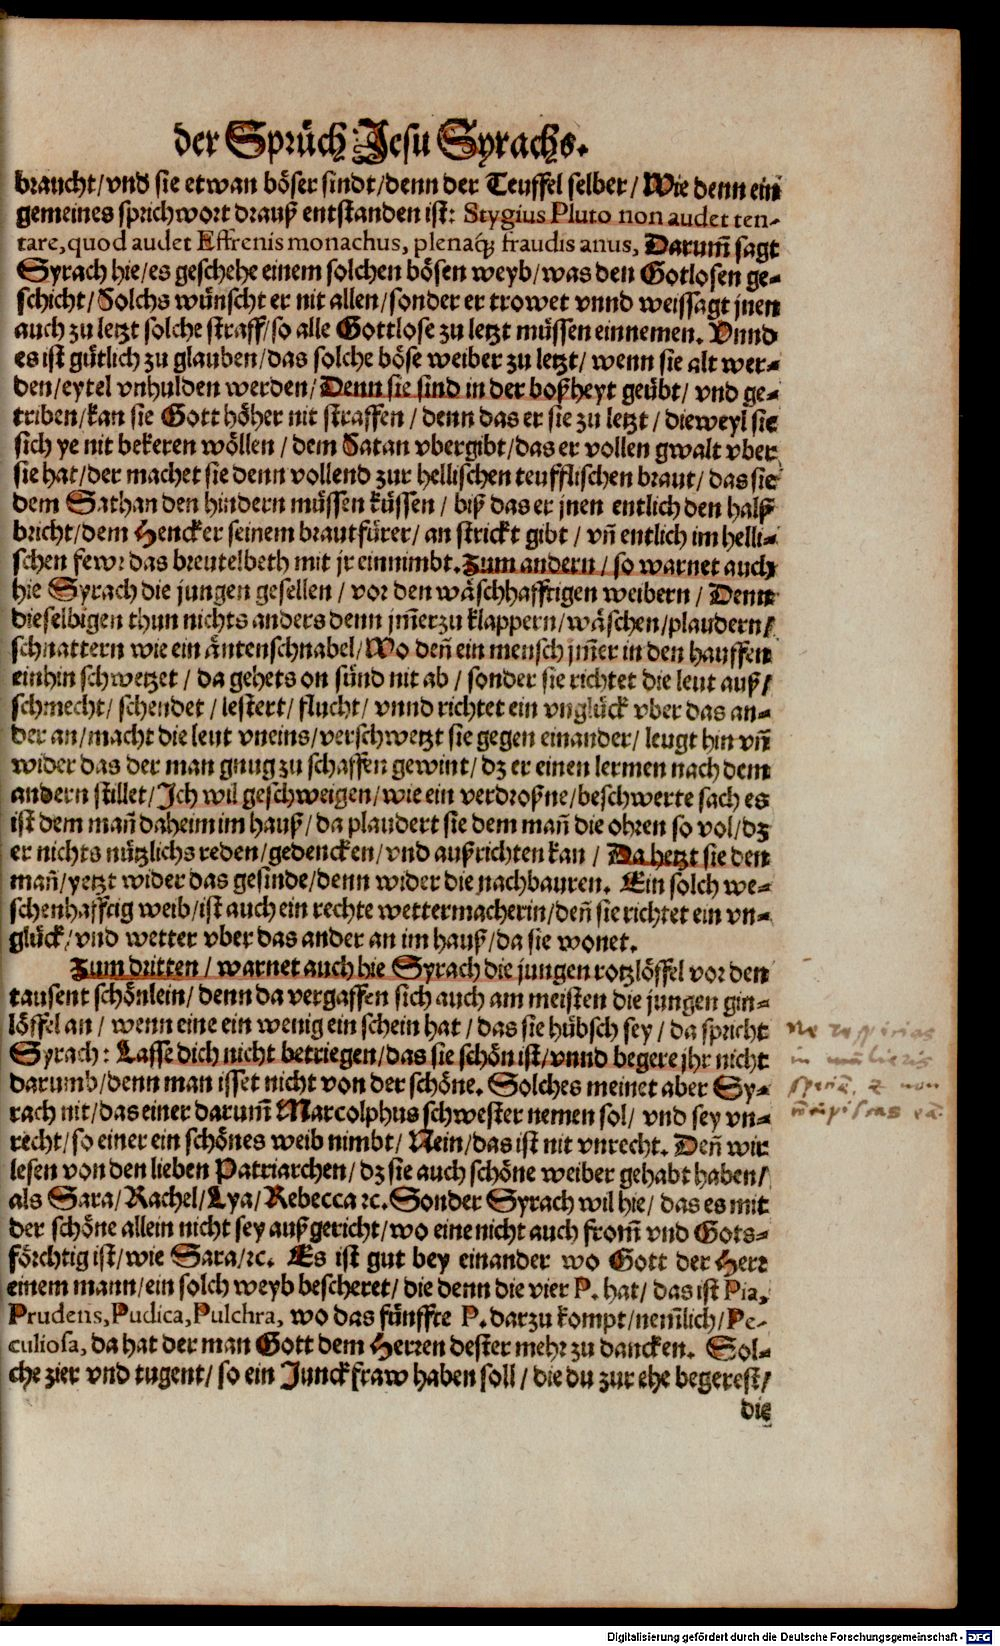 der Sprüch Jesu Syrachs.
braucht/vnd sie etwan böser sindt/denn der Teuffel selber/Wie denn ein
gemeines sprichwort drauß entstanden ist: Stygius Pluto non audet ten-
tare, quod audet Effrenis monachus, plenaq́; fraudis anus, Darum̃ sagt
Syrach hie/es geschehe einem solchen bösen weyb/was den Gotlosen ge-
schicht/Solchs wünscht er nit allen/sonder er trowet vnnd weissagt jnen
auch zu letzt solche straff/so alle Gottlose zu letzt müssen einnemen. Vnnd
es ist gütlich zu glauben/das solche böse weiber zu letzt/wenn sie alt wer-
den/eytel vnhulden werden/Denn sie sind in der boßheyt geübt/vnd ge-
triben/kan sie Gott höher nit straffen/denn das er sie zu letzt/dieweyl sie
sich ye nit bekeren wöllen/dem Satan vbergibt/das er vollen gwalt vber
sie hat/der machet sie denn vollend zur hellischen teufflischen braut/das sie
dem Sathan den hindern müssen küssen/biß das er jnen entlich den halß
bricht/dem Hencker seinem brautfürer/an strickt gibt/vñ entlich im helli-
schen fewr das breutelbeth mit jr einnimbt. Zum andern/so warnet auch
hie Syrach die jungen gesellen/vor den wäschhafftigen weibern/Denn
dieselbigen thun nichts anders denn jm̃erzu klappern/wäschen/plaudern/
schnattern wie ein äntenschnabel/Wo deñ ein mensch jm̃er in den hauffen
einhin schwetzet/da gehets on sünd nit ab/sonder sie richtet die leut auß/
schmecht/schendet/lestert/flucht/vnnd richtet ein vnglück vber das an-
der an/macht die leut vneins/verschwetzt sie gegen einander/leugt hin vñ
wider das der man gnug zu schaffen gewint/dz er einen lermen nach dem
andern stillet/Ich wil geschweigen/wie ein verdroßne/beschwerte sach es
ist dem mañ daheim im hauß/da plaudert sie dem mañ die ohren so vol/dz
er nichts nützlichs reden/gedencken/vnd außrichten kan/Da hetzt sie den
mañ/yetzt wider das gesinde/denn wider die nachbauren. Ein solch we-
schenhafftig weib/ist auch ein rechte wettermacherin/deñ sie richtet ein vn-
glück/vnd wetter vber das ander an im hauß/da sie wonet.
Zum dritten/warnet auch hie Syrach die jungen rotzlöffel vor den
tausent schönlein/denn da vergaffen sich auch am meisten die jungen gin-
löffel an/wenn eine ein wenig ein schein hat/das sie hübsch sey/da spricht
Syrach: Lasse dich nicht betriegen/das sie schön ist/vnnd begere jhr nicht
darumb/denn man isset nicht von der schöne. Solches meinet aber Sy-
rach nit/das einer darum̃ Marcolphus schwester nemen sol/vnd sey vn-
recht/so einer ein schönes weib nimbt/Nein/das ist nit vnrecht. Deñ wir
lesen von den lieben Patriarchen/dz sie auch schöne weiber gehabt haben/
als Sara/Rachel/Lya/Rebecca ꝛc. Sonder Syrach wil hie/das es mit
der schöne allein nicht sey außgericht/wo eine nicht auch from̃ vnd Gots-
förchtig ist/wie Sara/ꝛc. Es ist gut bey einander wo Gott der Herr
einem mann/ein solch weyb bescheret/die denn die vier P. hat/das ist Pia,
Prudens, Pudica, Pulchra, wo das fünffte P. darzu kompt/nem̃lich/Pe-
culiosa, da hat der man Gott dem Herren dester mehr zu dancken. Sol-
che zier vnd tugent/so ein Junckfraw haben soll/die du zur ehe begerest/
die
Ne respicias
in mulieris
speciē, & non
cōcupiscas eā.
Digitalisierung gefördert durch die Deutsche Forschungsgemeinschaft - DFG